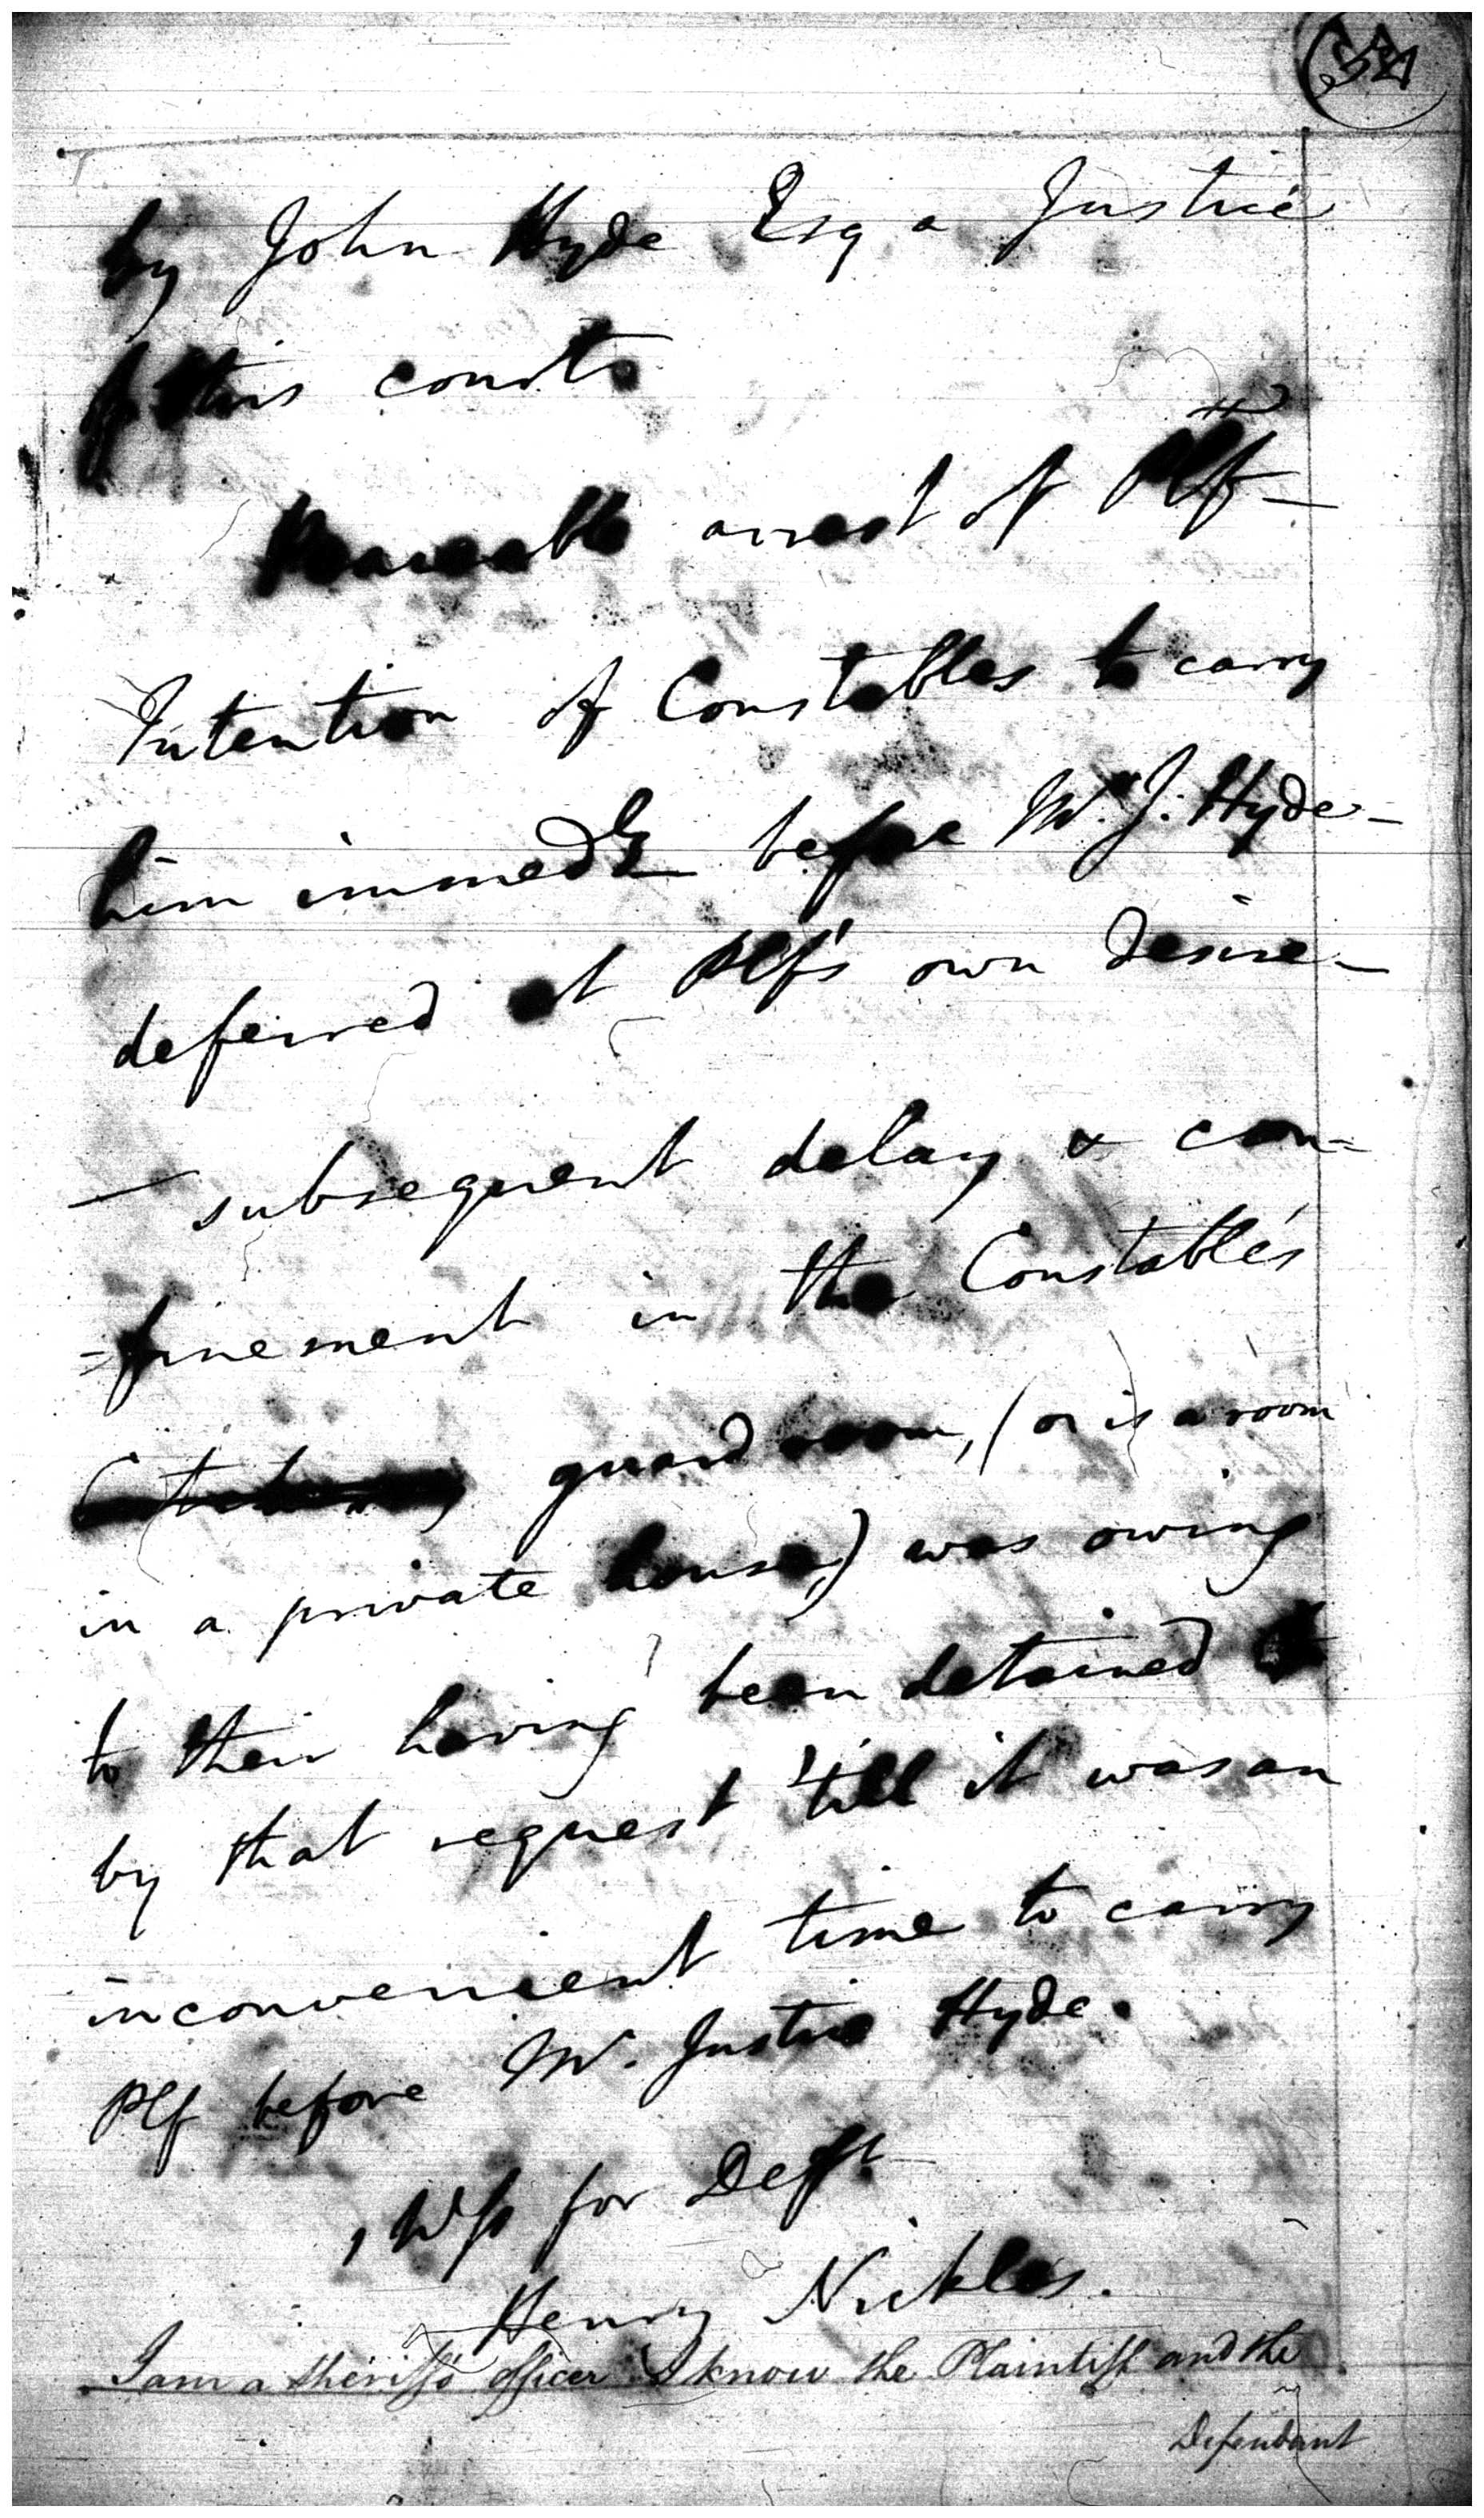 by John Hyde Esq a Justice
of this court.
Peaceable arrest of Plf—
Intention of Constables to carry
him immedly before Mr. J. Hyde—
deferred at Plf's own desire—
— subsequent delay & con=
=finement in the Constable's
guard room, (or is a room
in a private house,) was owing
to their having been detained
by that request 'till it was an
inconvenient time to carry
Plf before Mr. Justice Hyde.
Wss for Deft
Henry Nickles.
I am a sheriff's officer I know the Plaintiff and the
Defendant